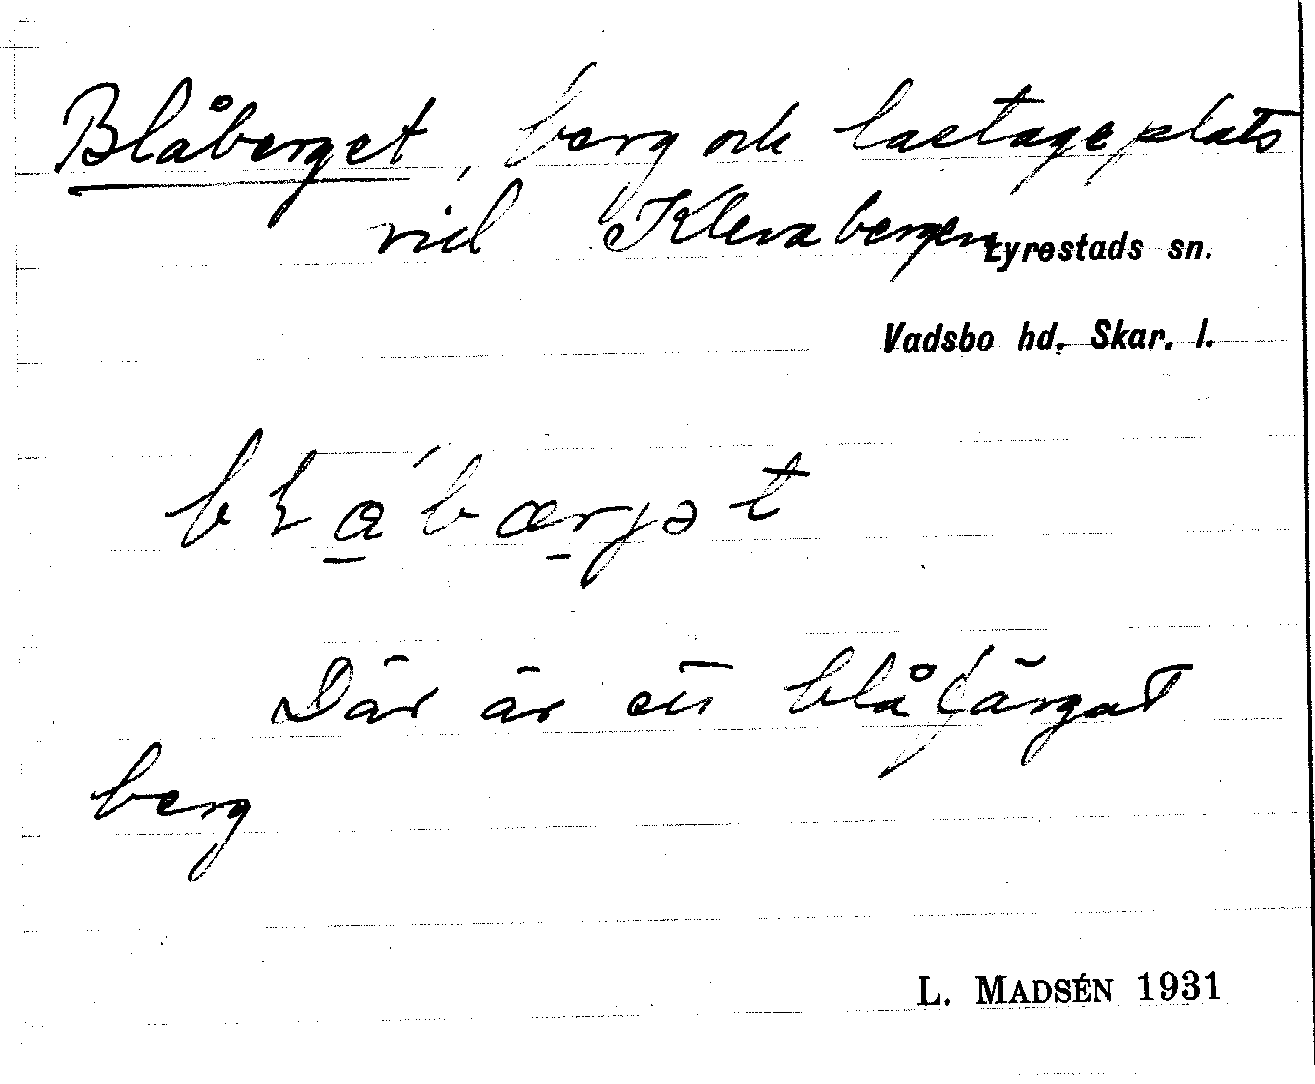 Blåberget, berg och lastageplats
vid Klevabergen
Lyrestads sn.
Vadsbo hd. Skar. l.
Där är ett blåfärgat
berg
L. MADSÉN 1931